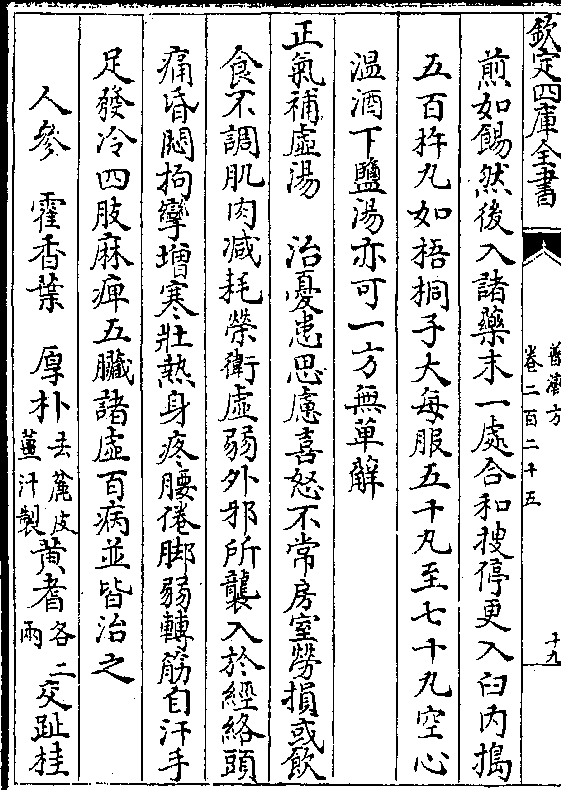 欽定四庫全書
普濟方
卷二百二十五
十九
煎如餳然後入諸藥末一處合和搜停更入臼內搗
五百杵丸如梧桐子大每服五十丸至七十丸空心
溫酒下鹽湯亦可一方無萆薢
正氣補虛湯　治憂患思慮喜怒不常房室勞損或飲
食不調肌肉减耗榮衛虛弱外邪所襲入於經絡頭
痛昏悶拘攣增寒壯熱身疼腰倦脚弱轉筋自汗手
足發冷四肢麻痺五臟諸虛百病並皆治之
人參　霍香葉　厚朴去麄皮薑汁製　黄耆各二兩　交趾桂